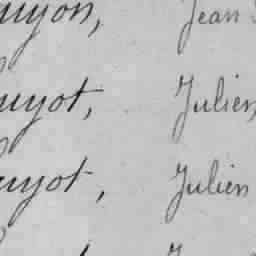 uyon, Jean
uyot, Julien,
uyot, Julien